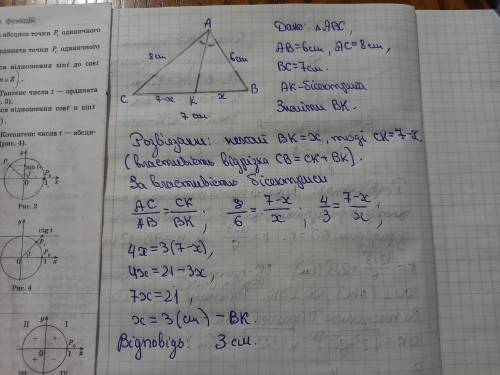 функцій
абсциса точки P, одиничного
ордината точки P, одиничного
ся відношення sin t до cos t
∈ Z).
Тангенс числа t — ордината
с. 3).
ся відношення cos t к sin t
Котангенс числа t — абсци-
(рис. 4).
Рис. 2
ctg t
Рис. 4
II I
A
8 см
6 см
C
7-x
K
x
B
7 см
Дано: △ABC,
AB=6см, AC=8см,
BC=7см.
AK-бісектриса
Знайти BK.
Розвʼязання: нехай BK=x, тоді CK=7-x
(властивість відрізка CB=CK+BK).
За властивість бісектриси
AC/AB = CK/BK; 8/6 = 7-x/x; 4/3 = 7-x/x;
4x=3(7-x),
4x=21-3x,
7x=21,
x=3(см)-BK.
Відповідь: 3 см.